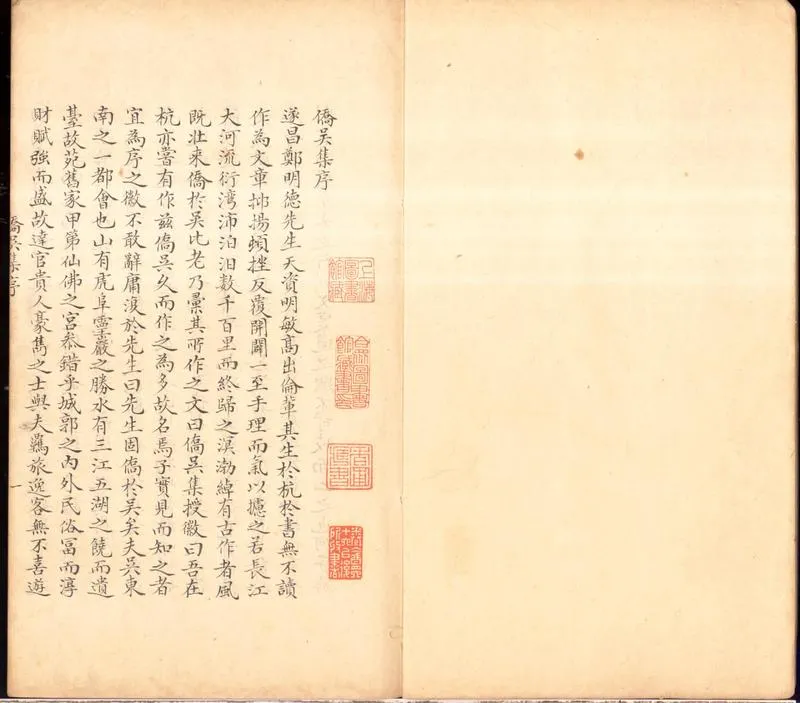 僑吳集序
遂昌鄭明德先生天資明敏髙出倫輩其生於杭於書無不讀
作為文章抑揚頓挫反覆開闔一至乎理而氣以攄之若長江
大河流衍灣沛泊汩數千百里而終歸之溟渤綽有古作者風
既壯来僑於吳比老乃彚其所作之文曰僑吳集授徽曰吾在
杭亦嘗有作兹僑吳久而作之為多故名焉子實見而知之者
宜為序之徽不敢辭庸復於先生曰先生固僑於吳矣夫吳東
南之一都會也山有虎阜靈巖之勝水有三江五湖之饒而遺
臺故苑舊家甲第仙佛之宮叅錯乎城郭之內外民俗冨而淳
財賦強而盛故達官貴人豪雋之士與夫羈旅逸客無不喜遊
僑吳集序
一